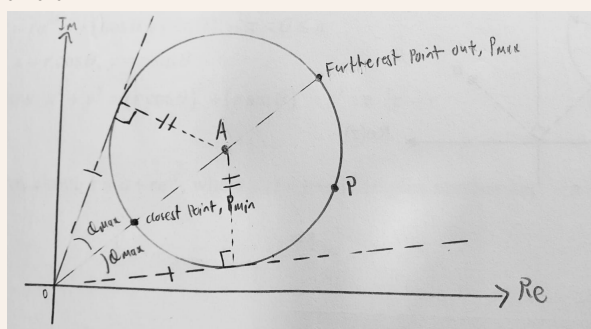 Im
Furtherest Point out, Pmax
A
P
closest Point, Pmin
αmax
θmax
O
Re